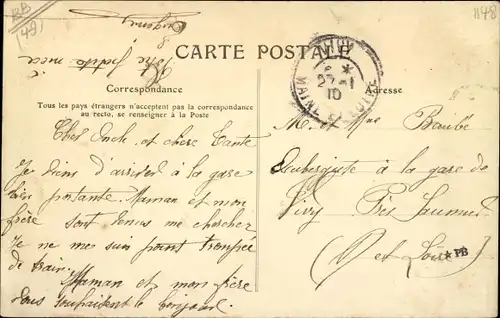 BB
(49)
1148
Votre petite nièce
CARTE POSTALE
Correspondance
Tous les pays étrangers n'acceptent pas la correspondance
au recto, se renseigner à la Poste
Adresse
27-1
10
MAINE
Cher Oncle et chère Tante
Je viens d'arriver à la gare
bien portante. Maman et mon
frère sont venus me chercher
Je ne me suis point trompée
de train.
Maman et mon frère
vous souhaitent le bonjour
M. et Mme
Aubergiste à la gare de
Près Saumur
et Loire
PB